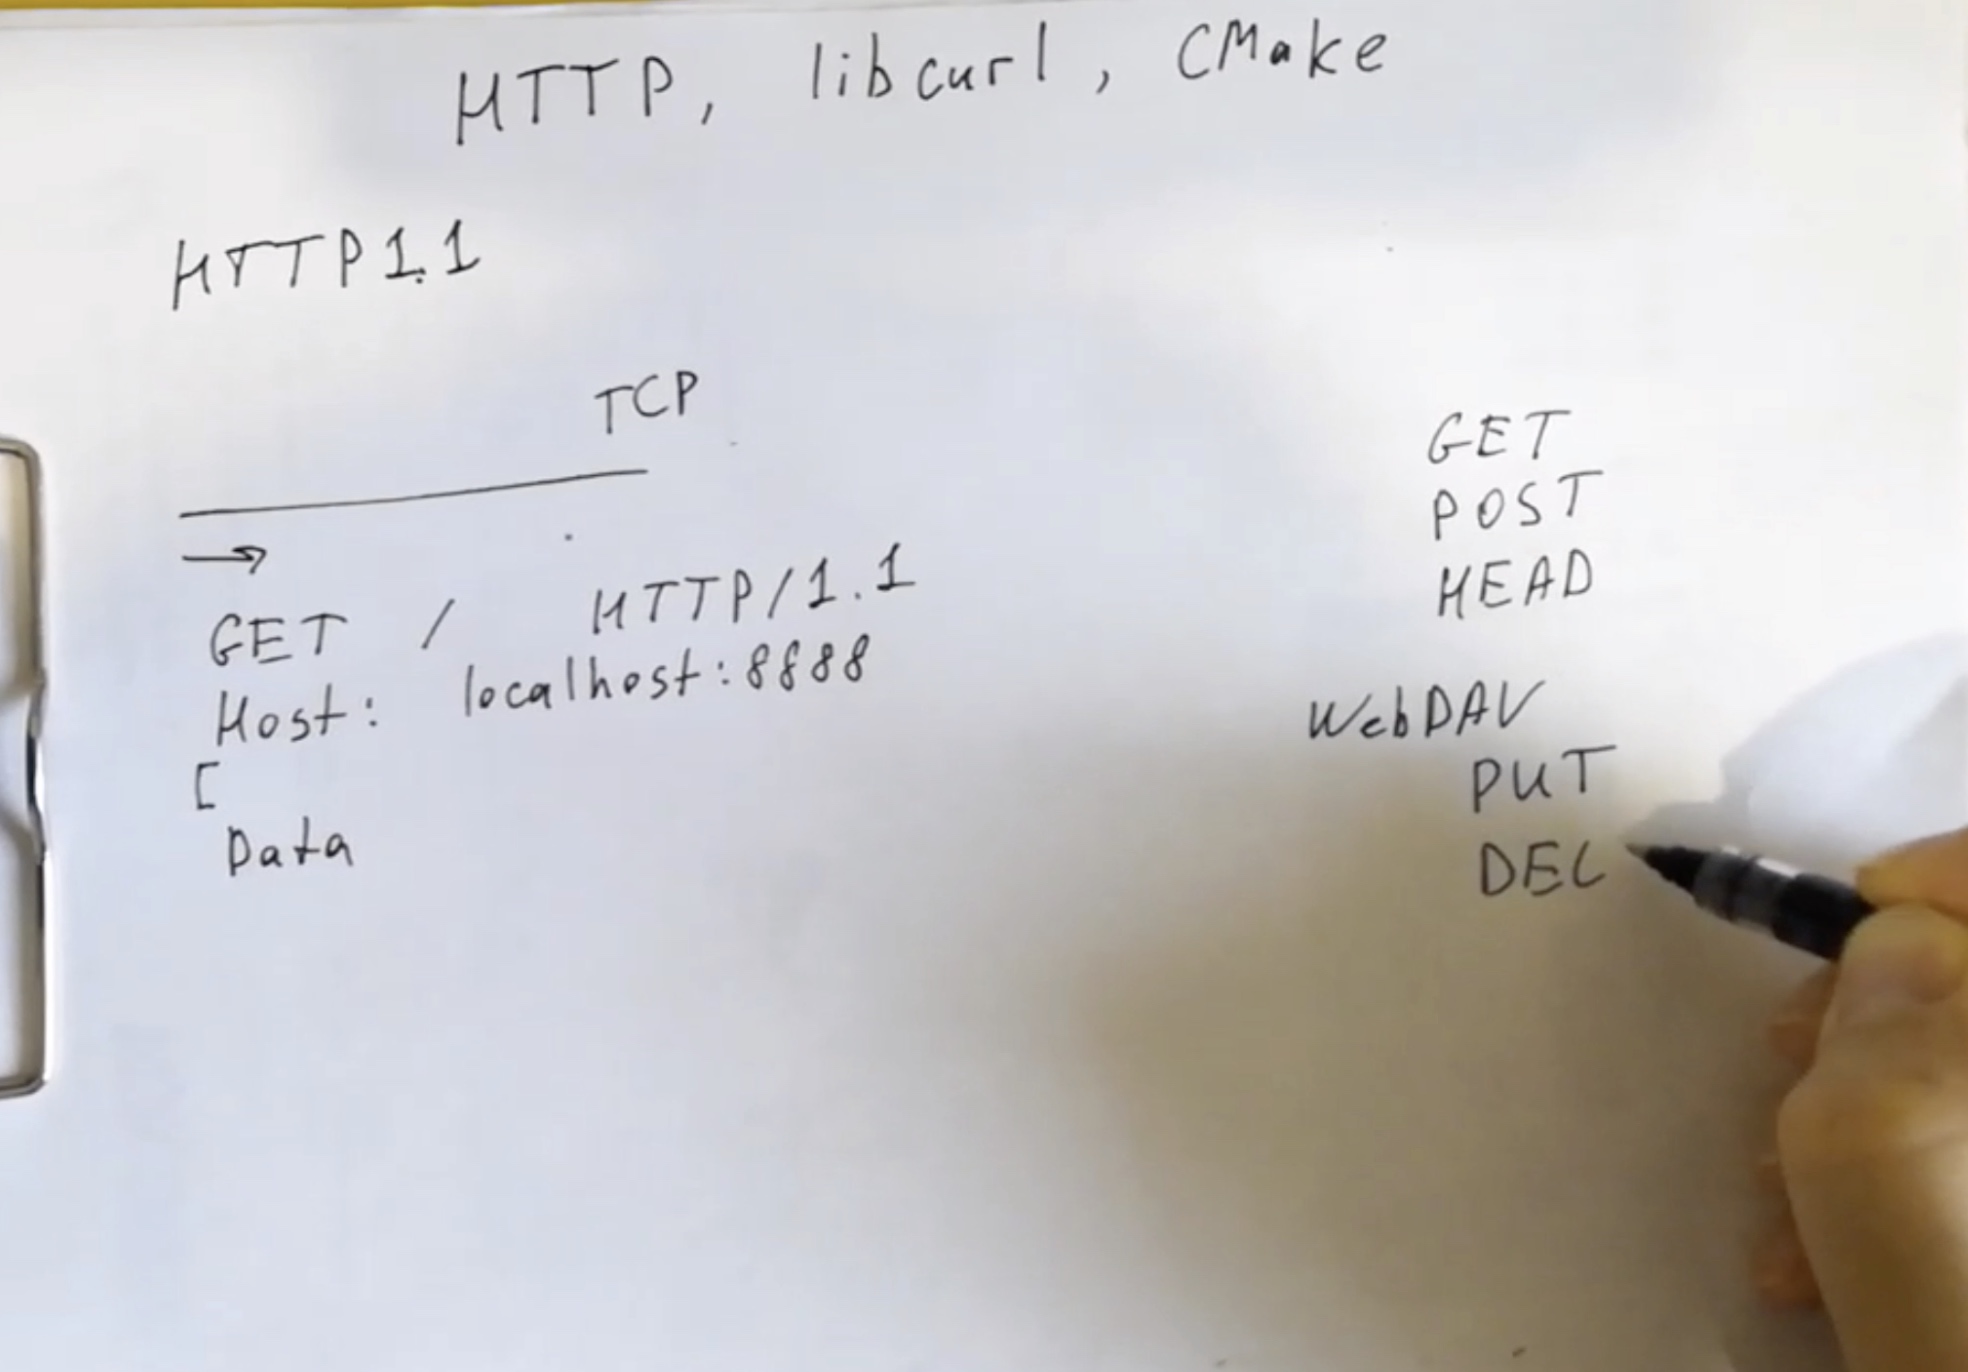 HTTP, libcurl, CMake
HTTP1.1
TCP
GET / HTTP/1.1
Host: localhost:8888
[
Data
GET
POST
HEAD
WebDAV
PUT
DEL